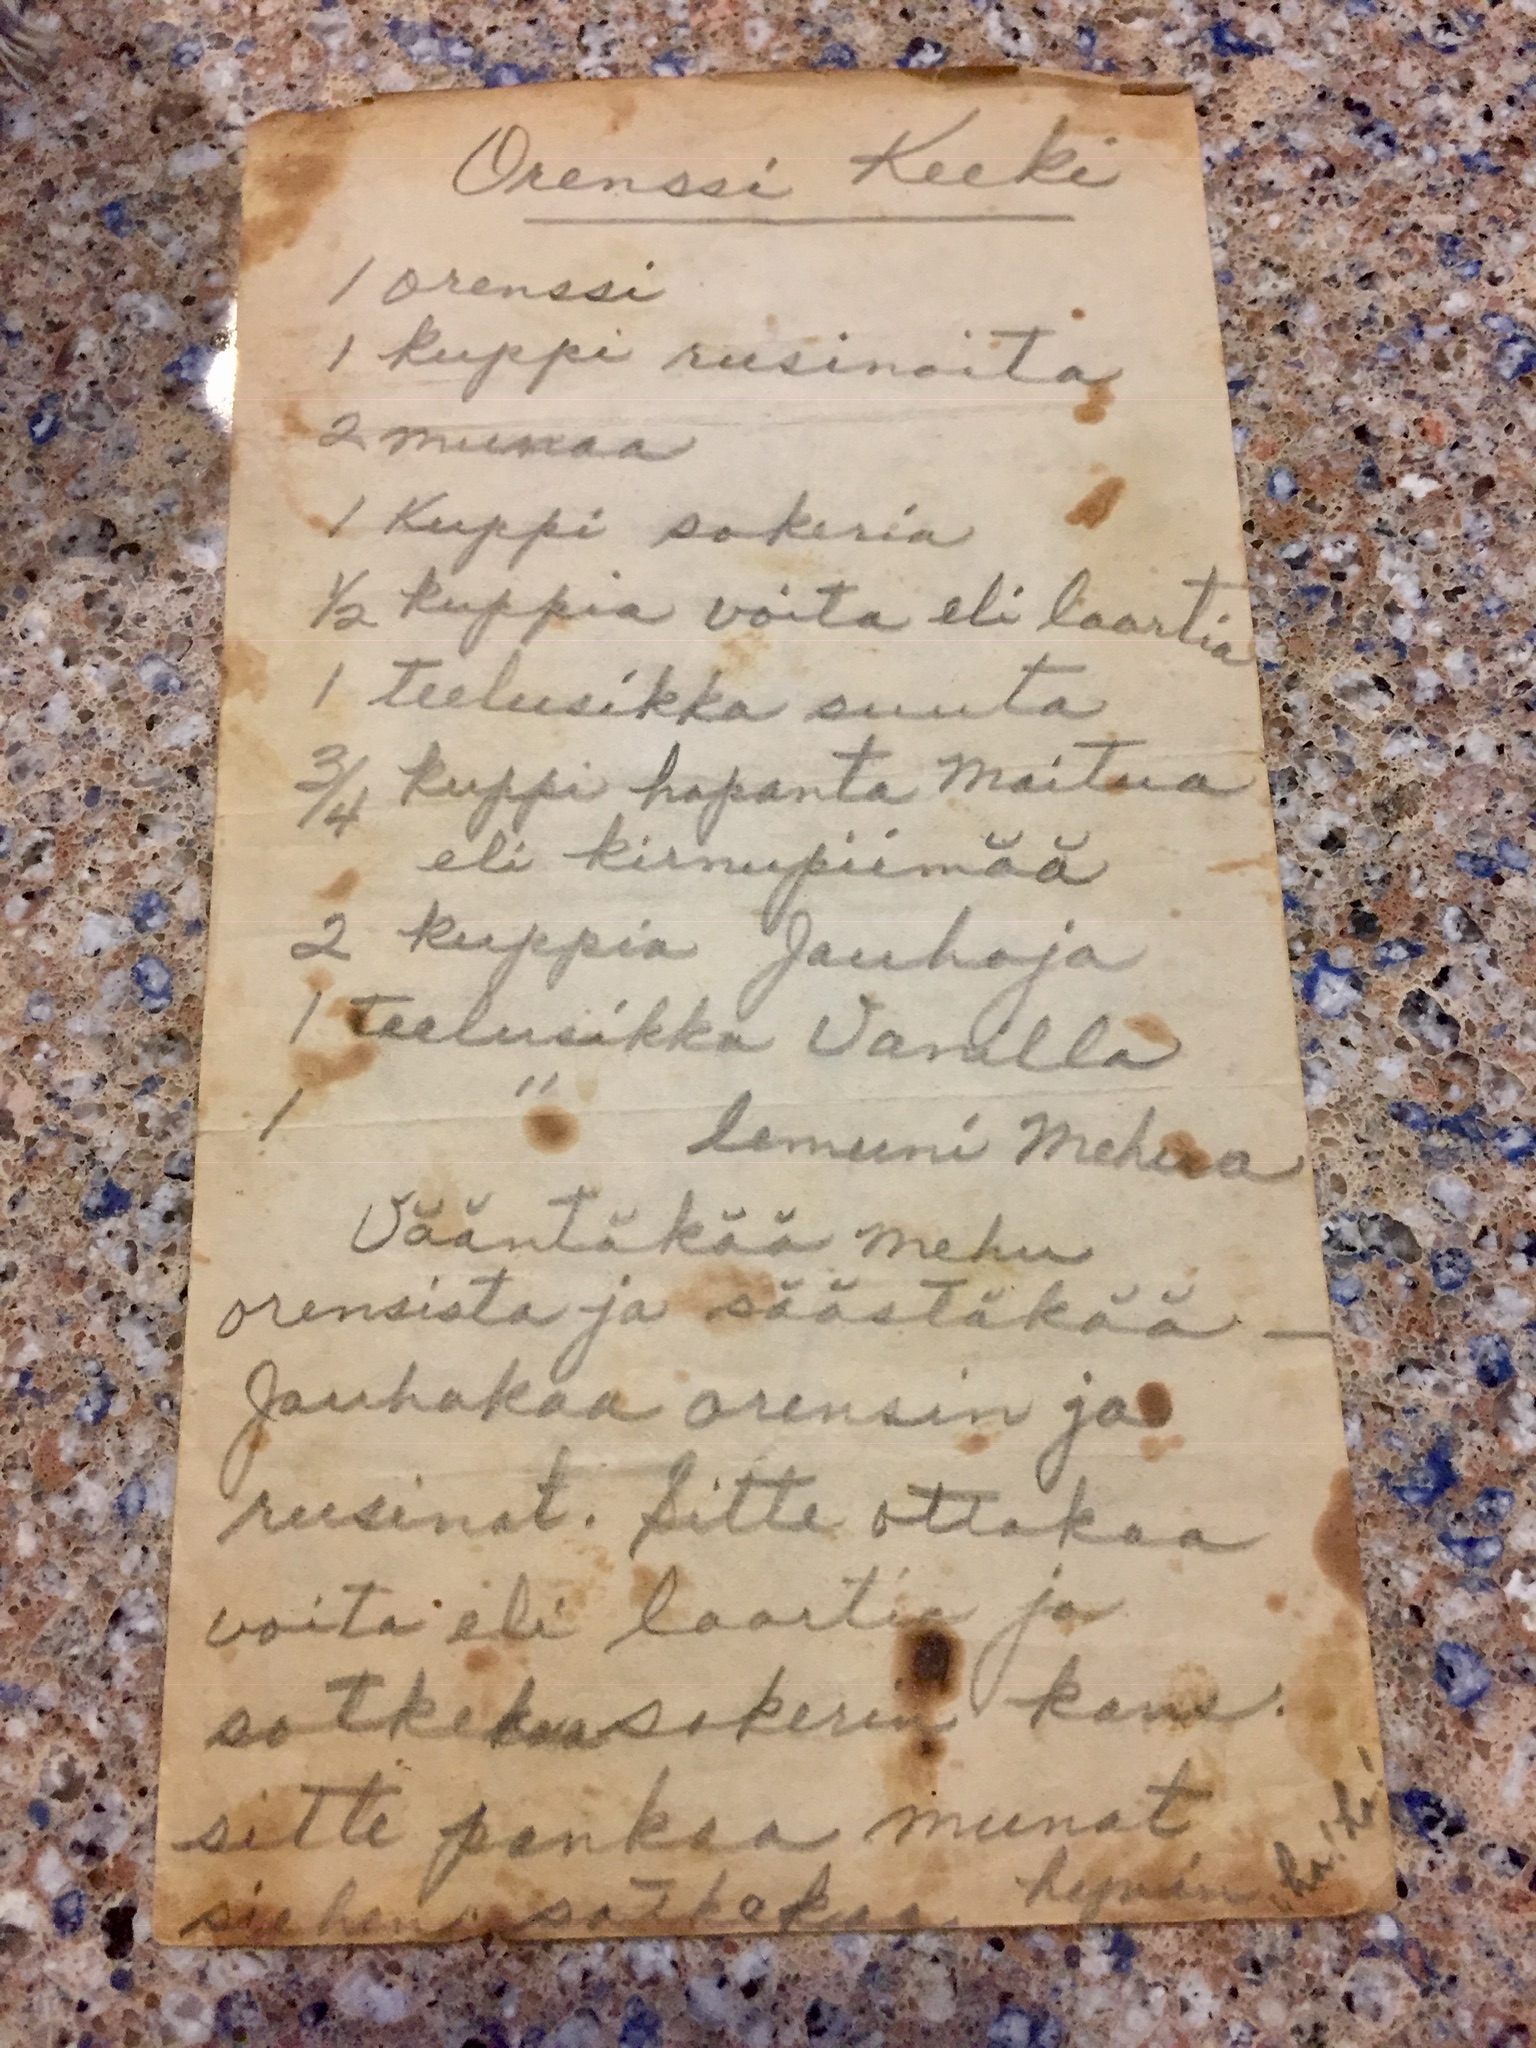 Orenssi Keeki
1 orenssi
1 kuppi rusinoita
2 munaa
1 Kuppi sokeria
1/2 kuppia voita eli laartia
1 teelusikka suuta
3/4 kuppi hapanta Maitua
eli kirnupiimää
2 kuppia Jauhoja
1 teelusikka Vanilla
1 " lemuni Mehua
Vääntäkää mehu
orensista ja säästäkää —
Jauhakaa orensin ja
rusinat. Sitte ottakaa
voita eli laartia ja
sotkekaa sokerin kans.
sitte pankaa munat
siehen sotkekaa hyvin